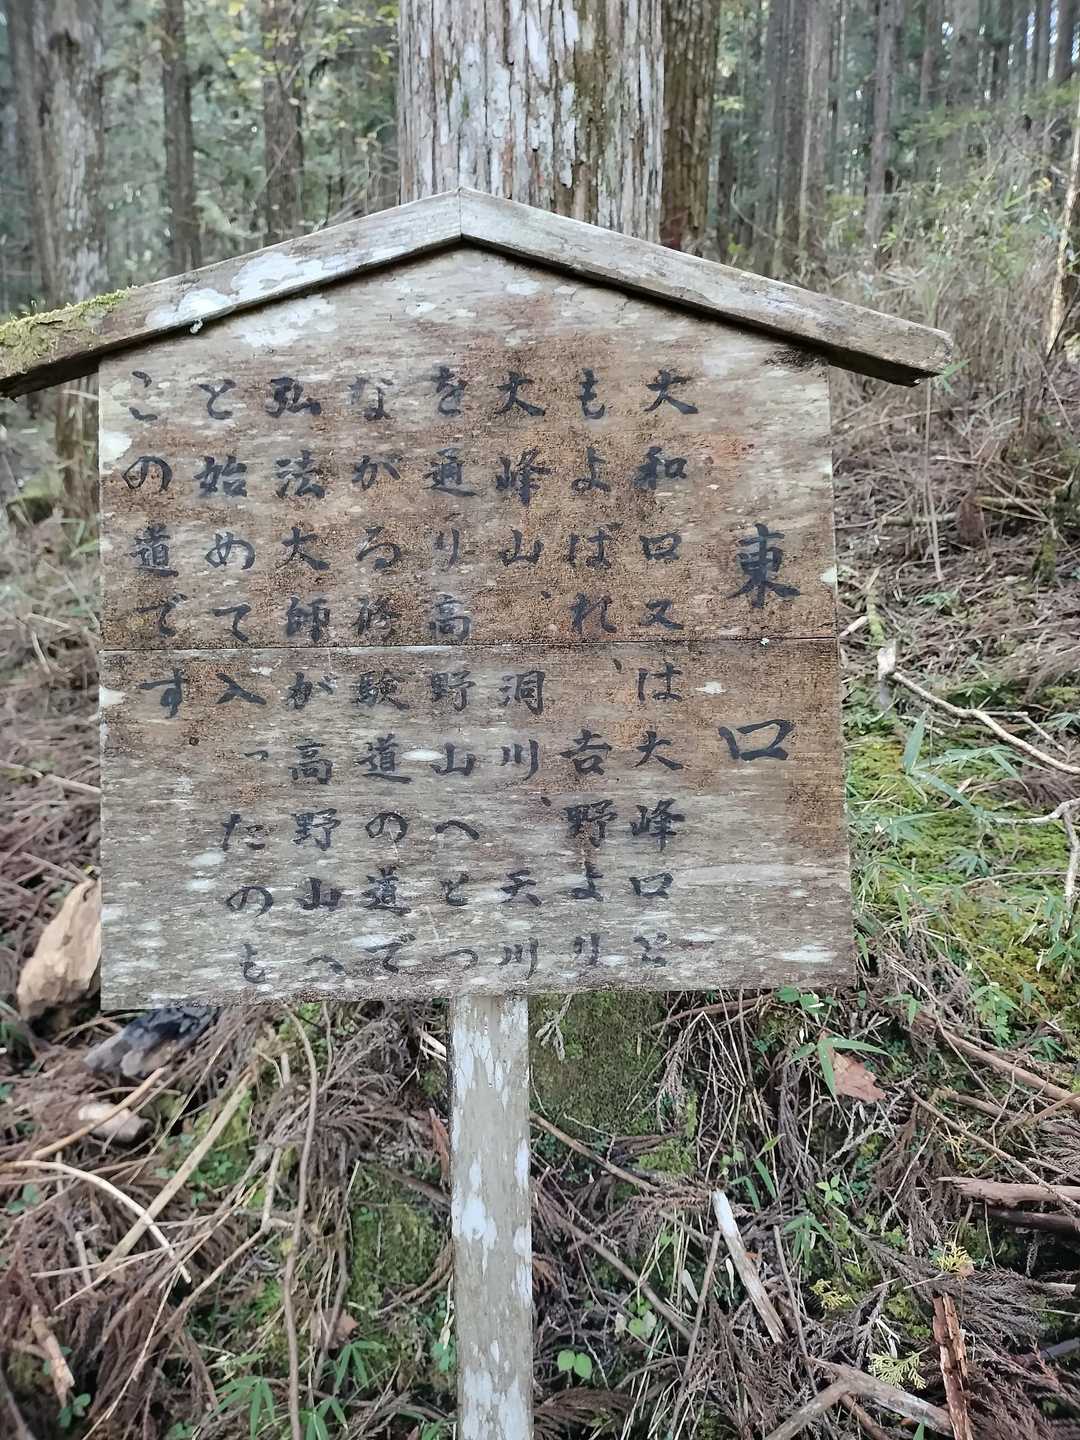 東口
大和口又は大峰口と
もよばれ、吉野より
大峰山、洞川、天川
を通り高野山へとつ
ながる修験道の道で
弘法大師が高野山へ
と始めて入ったのも
この道です